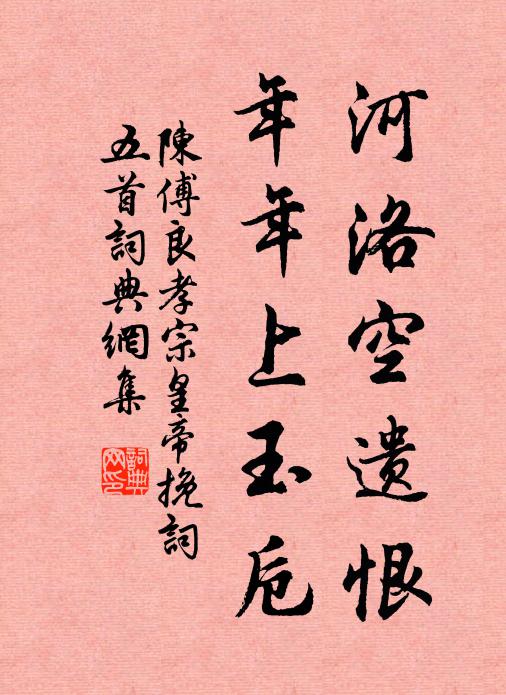 河洛空遺恨
年年上玉卮
陳傅良孝宗皇帝挽詞
五首詞典網集
詞典网印